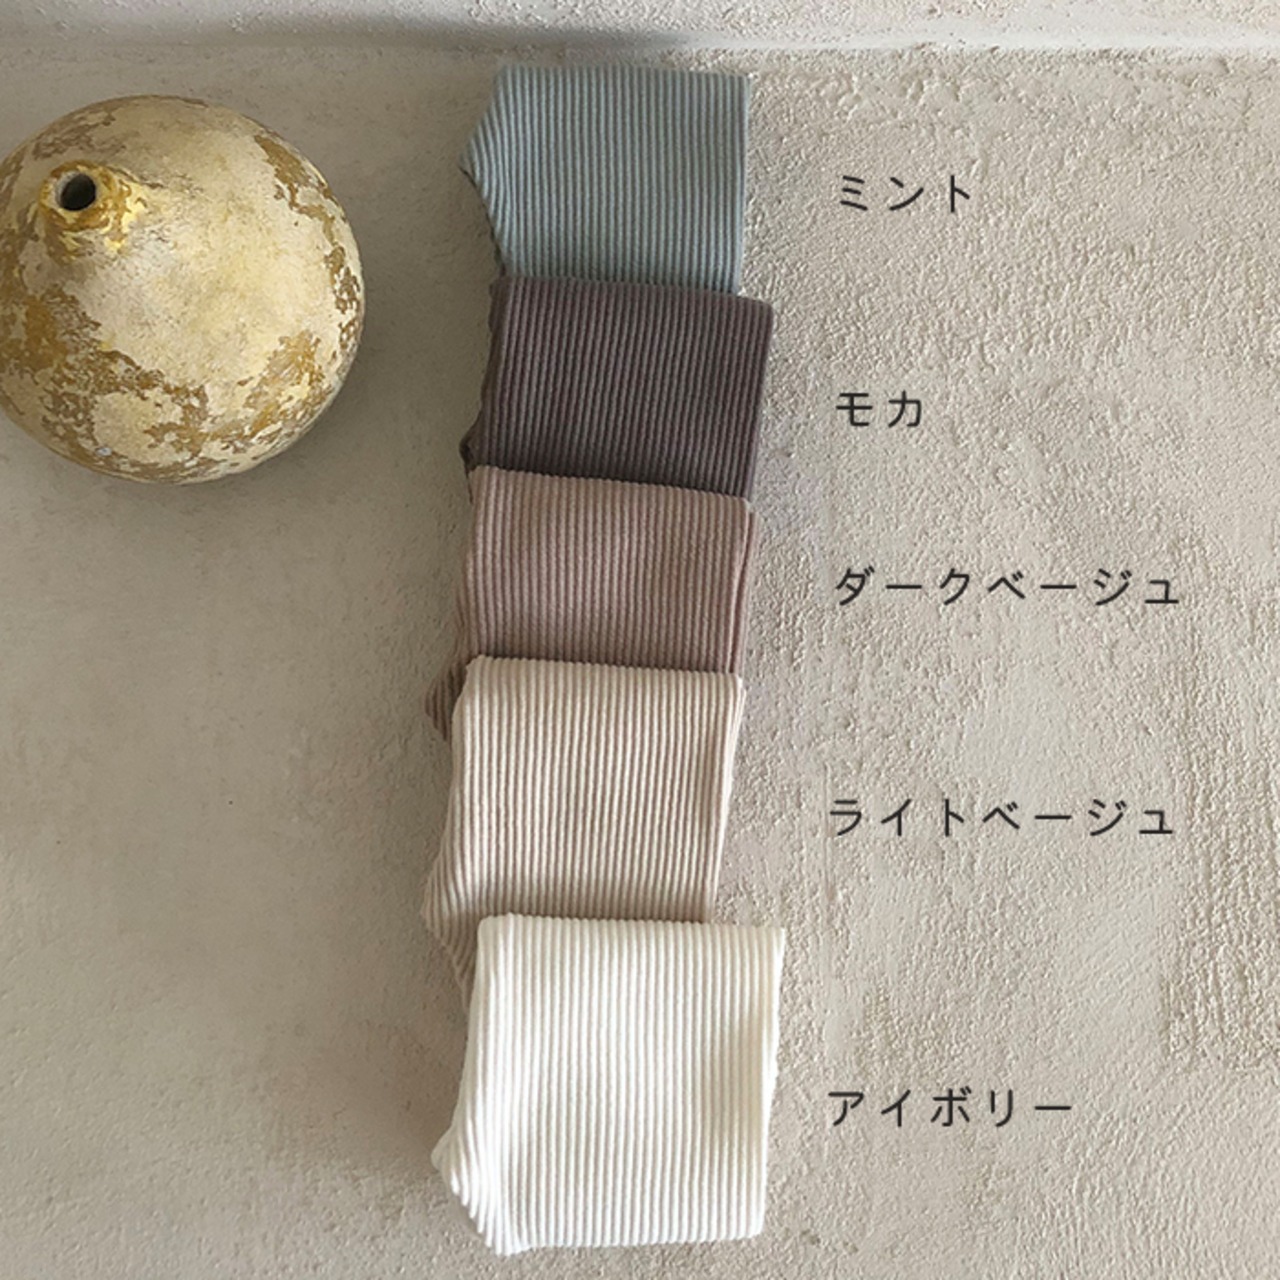 ミント
モカ
ダークベージュ
ライトベージュ
アイボリー